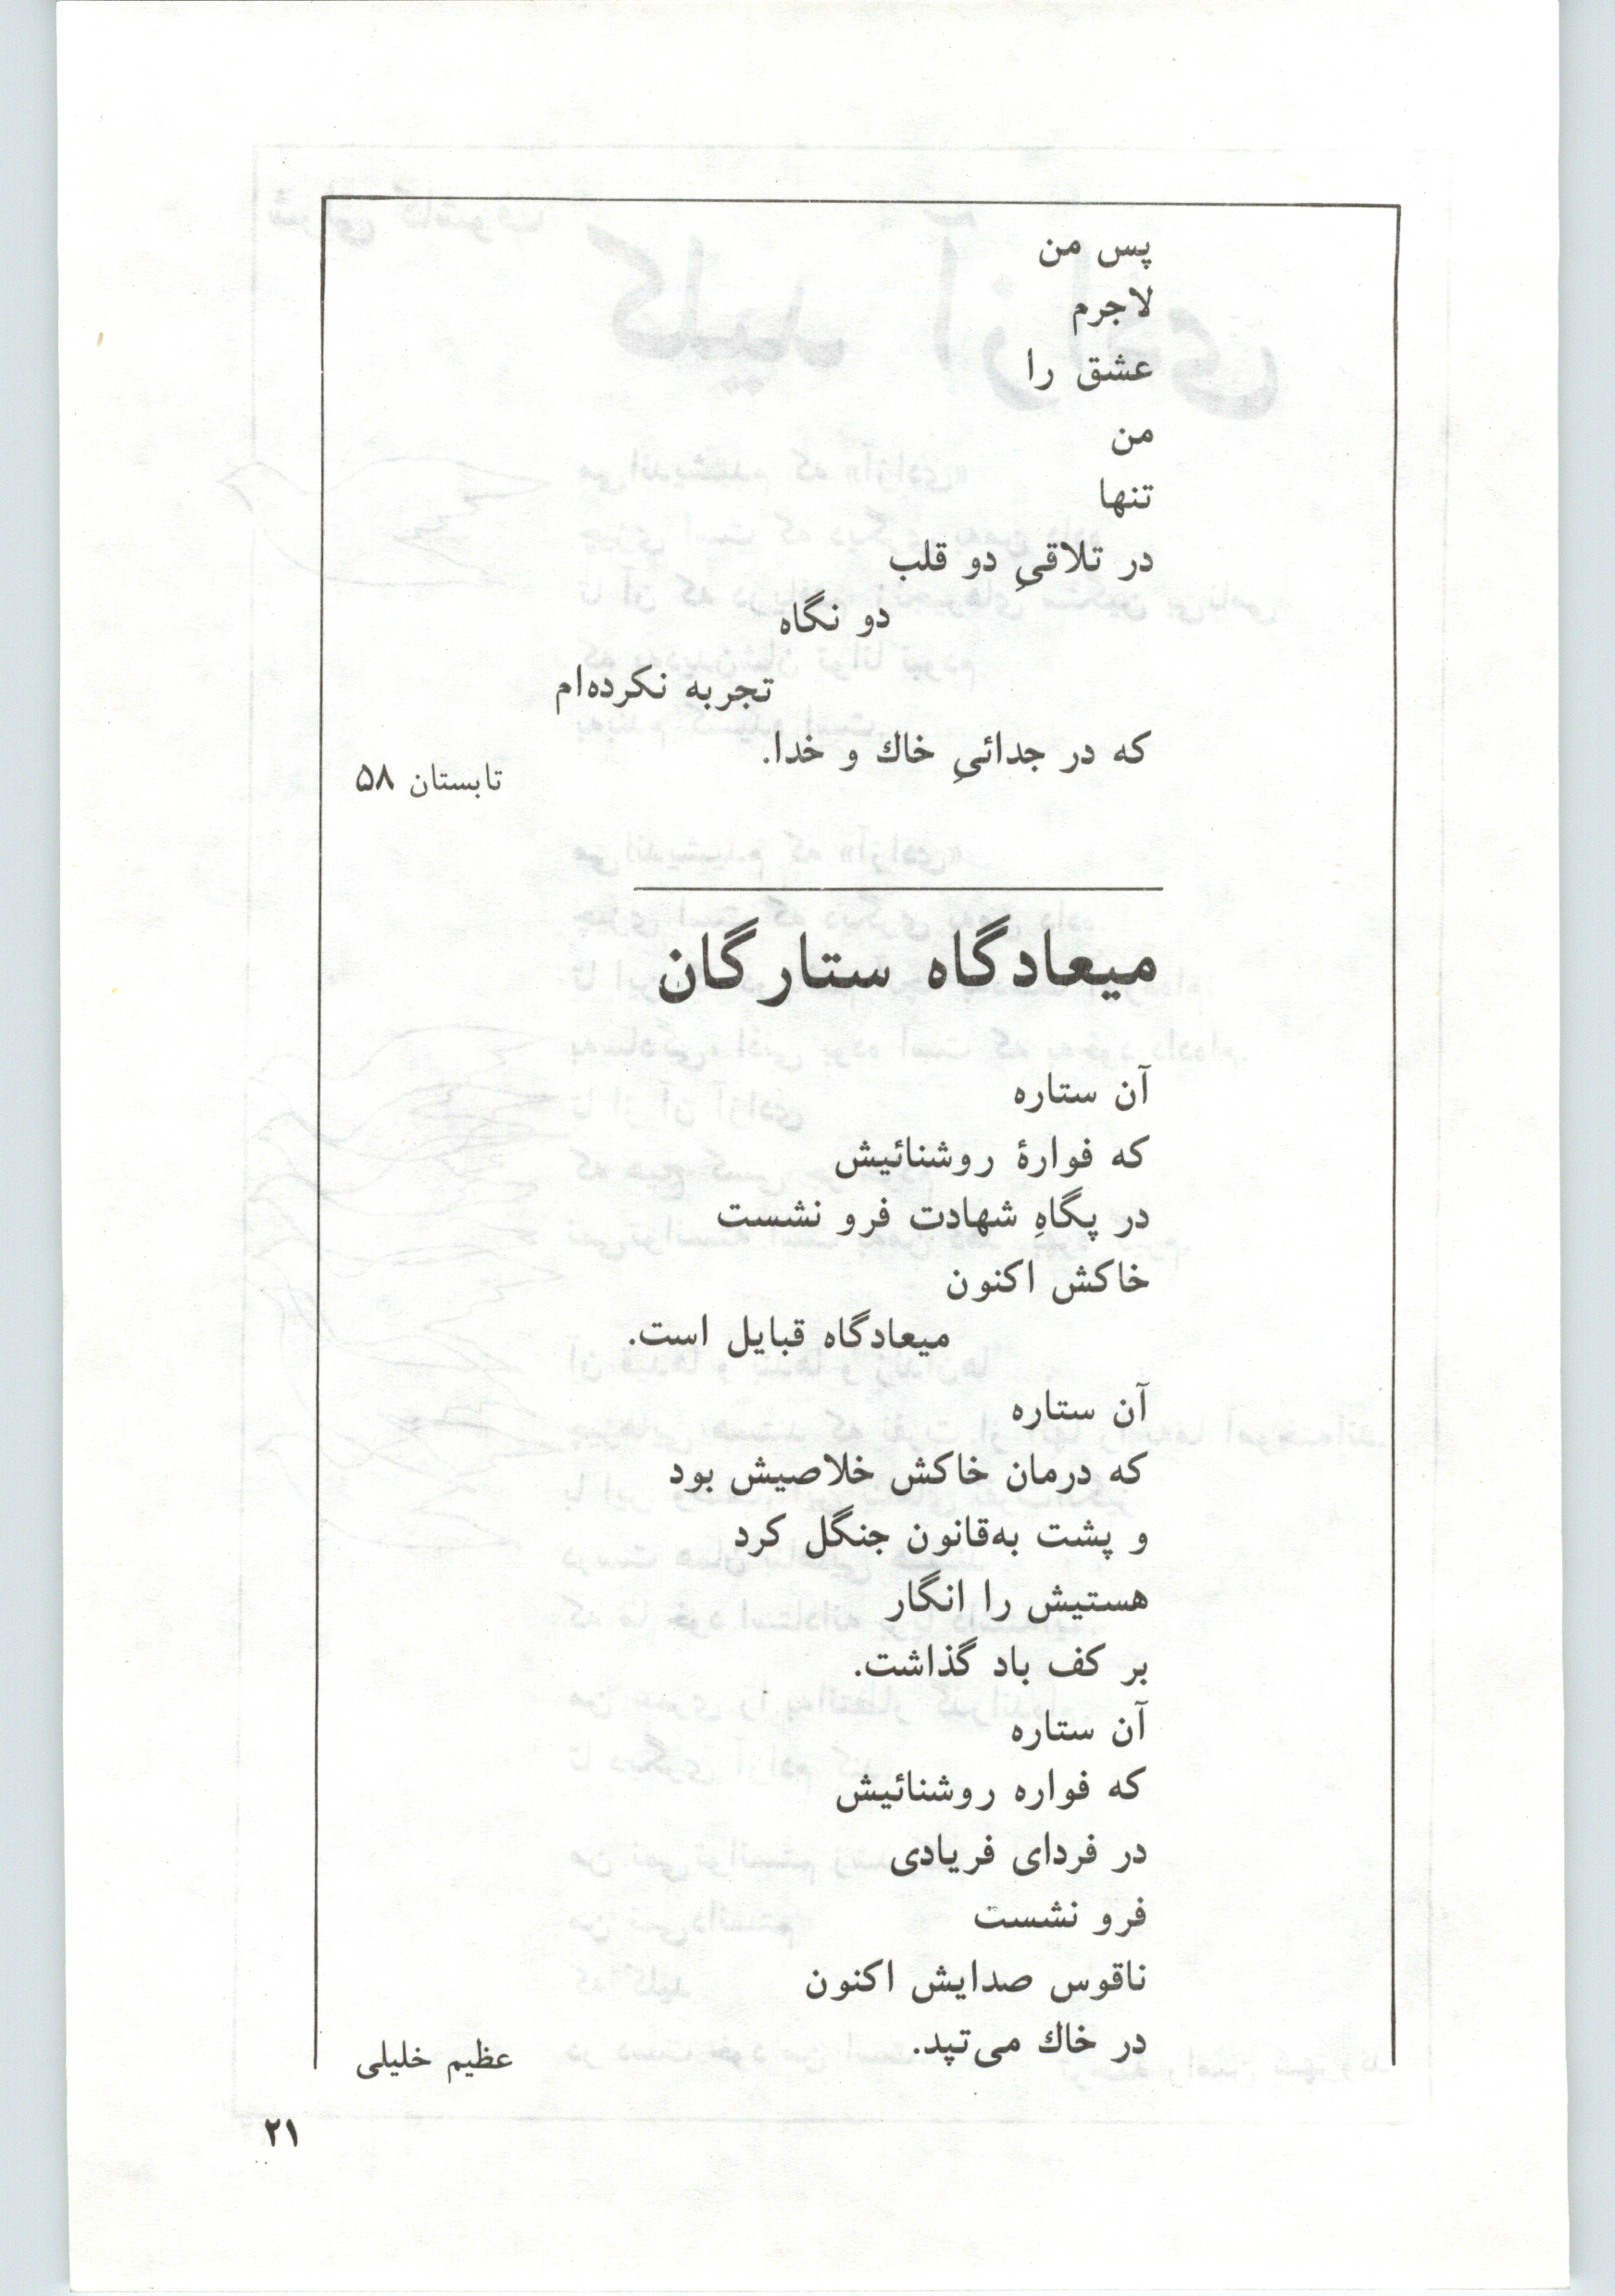 پس من
لاجرم
عشق را
من
تنها
در تلاقیِ دو قلب
دو نگاه
تجربه نکرده‌ام
که در جدائیِ خاك و خدا.
تابستان ۵۸
میعادگاه ستارگان
آن ستاره
که فوارهٔ روشنائیش
در پگاهِ شهادت فرو نشست
خاکش اکنون
میعادگاه قبایل است.
آن ستاره
که درمان خاکش خلاصیش بود
و پشت به‌قانون جنگل کرد
هستیش را انگار
بر کف باد گذاشت.
آن ستاره
که فواره روشنائیش
در فردای فریادی
فرو نشست
ناقوس صدایش اکنون
در خاك می‌تپد.
عظیم خلیلی
۲۱